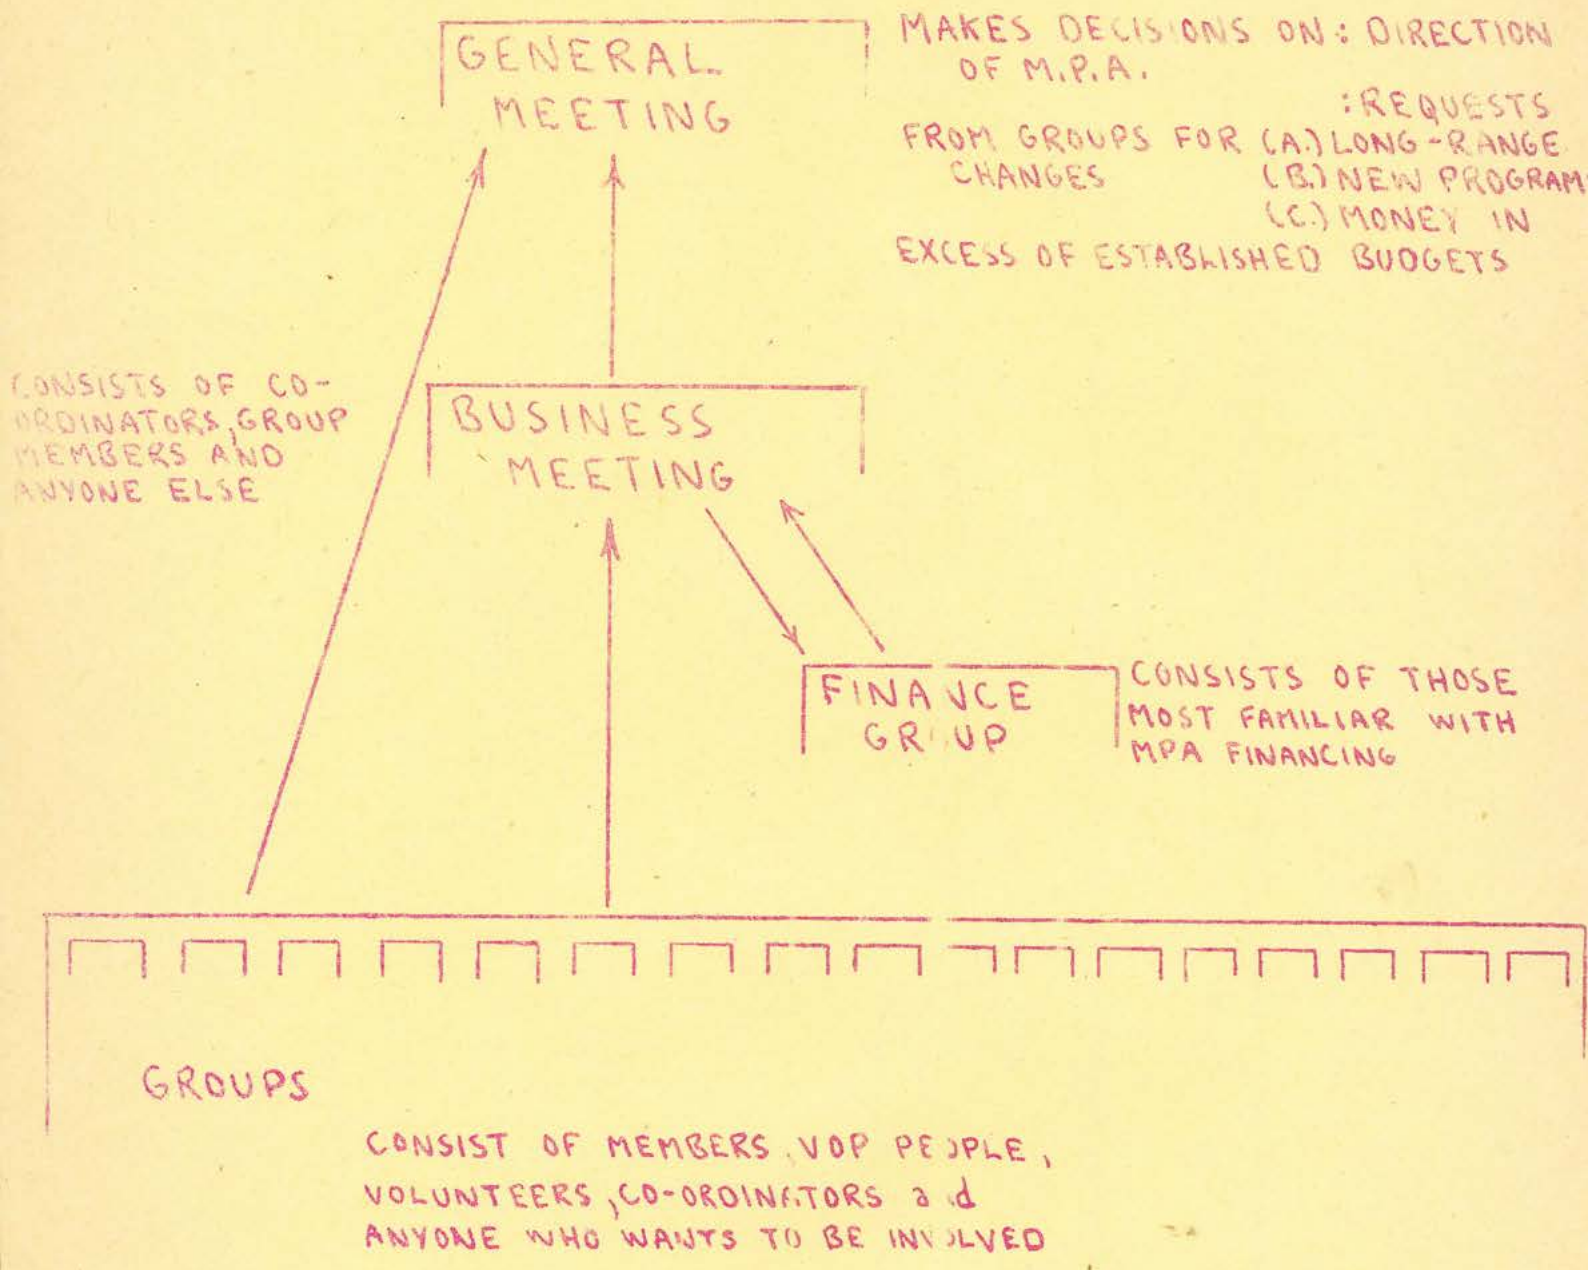 GENERAL
MEETING
MAKES DECISIONS ON: DIRECTION
OF M.P.A.
:REQUESTS
FROM GROUPS FOR (A.) LONG-RANGE
CHANGES (B.) NEW PROGRAM
(C.) MONEY IN
EXCESS OF ESTABLISHED BUDGETS
CONSISTS OF CO-
ORDINATORS, GROUP
MEMBERS AND
ANYONE ELSE
BUSINESS
MEETING
FINANCE
GROUP
CONSISTS OF THOSE
MOST FAMILIAR WITH
MPA FINANCING
GROUPS
CONSIST OF MEMBERS, VOP PEOPLE,
VOLUNTEERS, CO-ORDINATORS and
ANYONE WHO WANTS TO BE INVOLVED